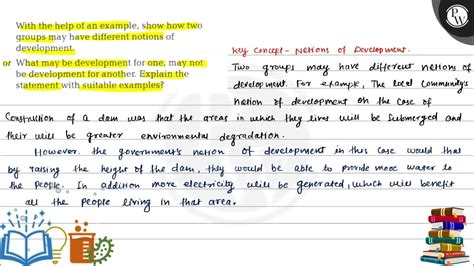 With the help of an example, show how two
groups may have different notions of
development.
or What may be development for one, may not
be development for another. Explain the
statement with suitable examples?
PW
Key Concept- Notions of Development.
Two groups may have different notions of
development. For example, The local Community's
notion of development on the case of
Construction of a dam was that the areas in which they lives will be Submerged and
their will be greater environmental degradation.
However, the government's notion of development in this case would that
by raising the height of the dam, they would be able to provide more water to
the people. In addition more electricity will be generated, which will benefit
all the people living in that area.